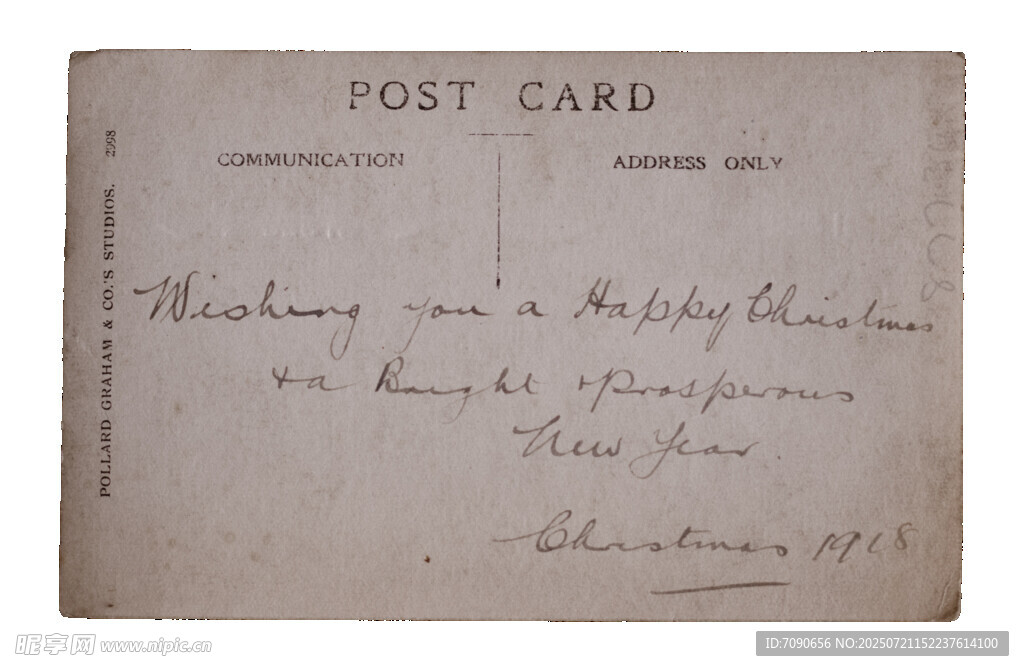 POST CARD
COMMUNICATION
ADDRESS ONLY
POLLARD GRAHAM & CO.'S STUDIOS. 2998
Wishing you a Happy Christmas
& a Bright & Prosperous
New Year.
Christmas 1918
昵享网 www.nipic.cn
ID:7090656 NO:20250721152237614100